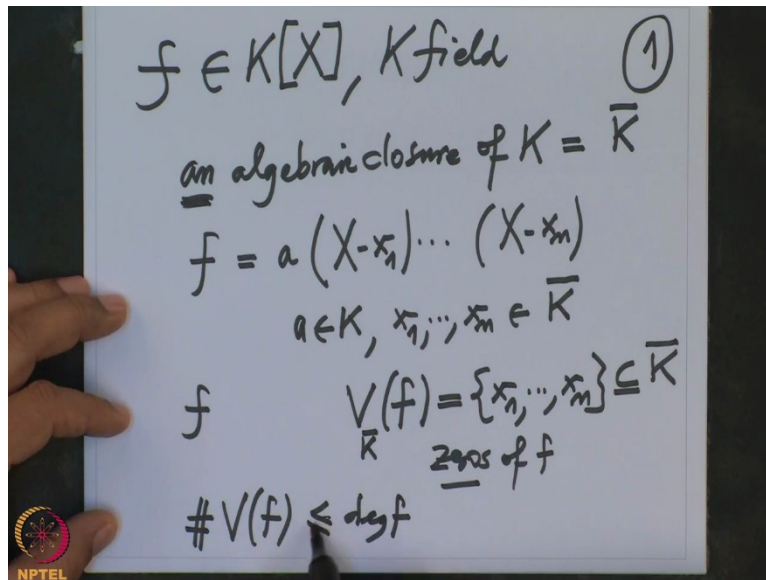 f ∈ K[X], K field
①
an algebraic closure of K = K̄
f = a (X-x₁)⋯ (X-xₙ)
a ∈ K, x₁,⋯, xₙ ∈ K̄
f V_K̄(f) = {x₁,⋯, xₙ} ⊆ K̄
zeros of f
# V(f) ≤ deg f
NPTEL